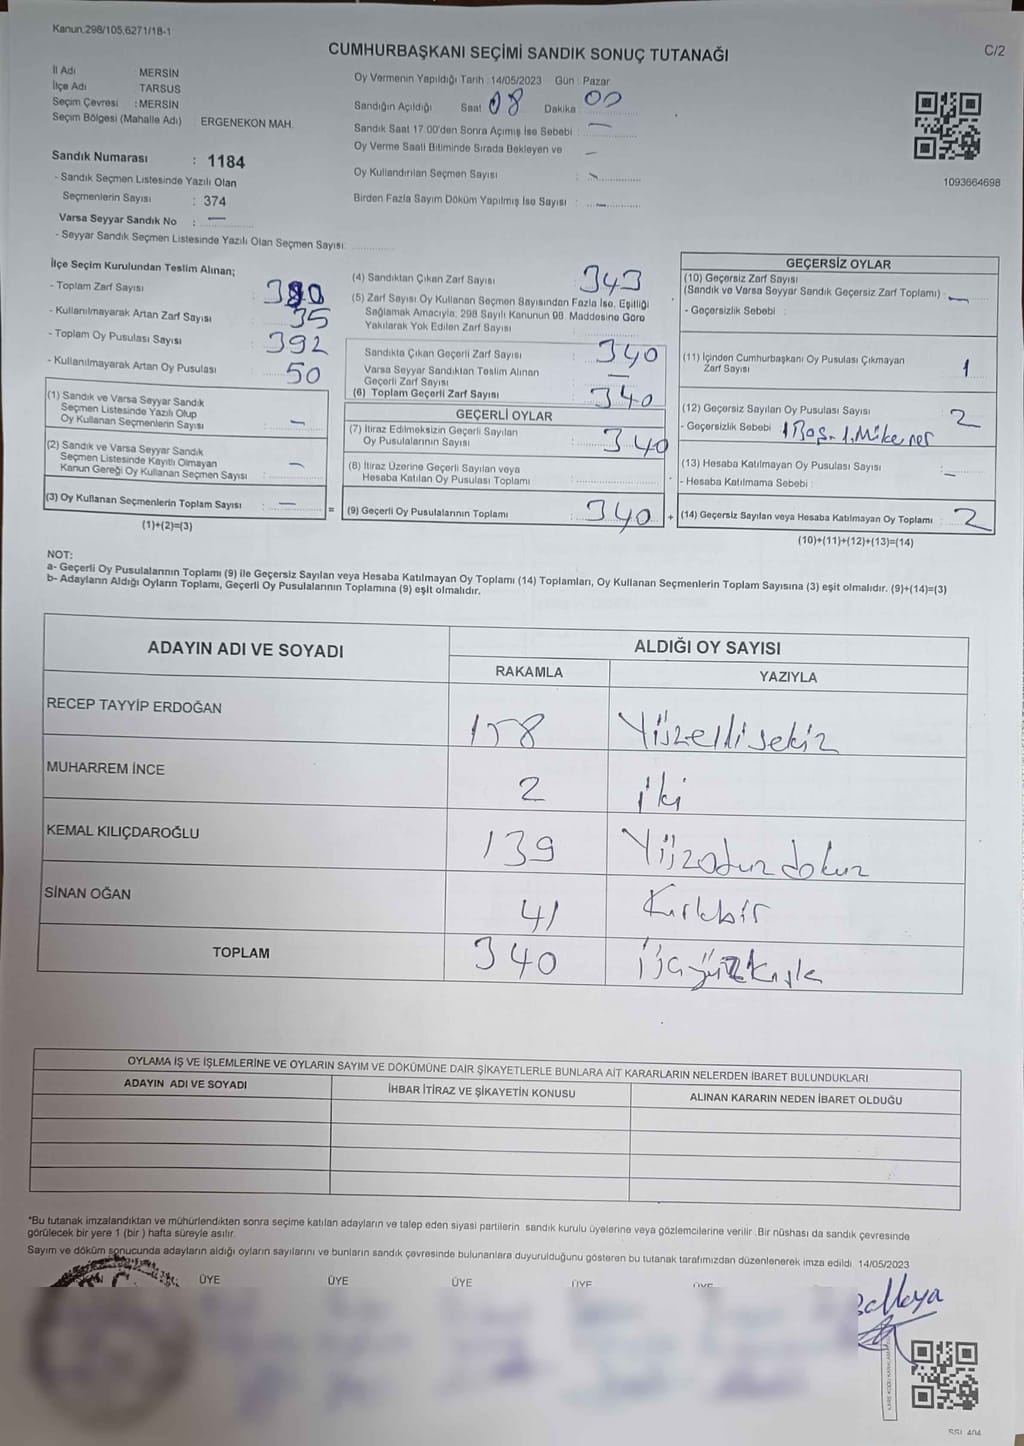 Kanun,298/105,6271/18-1
CUMHURBAŞKANI SEÇİMİ SANDIK SONUÇ TUTANAĞI
C/2
İl Adı MERSİN
İlçe Adı TARSUS
Seçim Çevresi : MERSİN
Seçim Bölgesi (Mahalle Adı) ERGENEKON MAH.
Sandık Numarası : 1184
- Sandık Seçmen Listesinde Yazılı Olan
Seçmenlerin Sayısı : 374
Varsa Seyyar Sandık No : —
- Seyyar Sandık Seçmen Listesinde Yazılı Olan Seçmen Sayısı:
Oy Vermenin Yapıldığı Tarih : 14/05/2023 Gün : Pazar
Sandığın Açıldığı Saat 08 Dakika : 00
Sandık Saat 17:00'den Sonra Açımış İse Sebebi : —
Oy Verme Saati Bitiminde Sırada Bekleyen ve —
Oy Kullandırılan Seçmen Sayısı :
Birden Fazla Sayım Döküm Yapılmış İse Sayısı : —
1093664698
İlçe Seçim Kurulundan Teslim Alınan;
- Toplam Zarf Sayısı : 380
- Kullanılmayarak Artan Zarf Sayısı : 35
- Toplam Oy Pusulası Sayısı : 392
- Kullanılmayarak Artan Oy Pusulası : 50
(1) Sandık ve Varsa Seyyar Sandık
Seçmen Listesinde Yazılı Olup
Oy Kullanan Seçmenlerin Sayısı : —
(2) Sandık ve Varsa Seyyar Sandık
Seçmen Listesinde Kayıtlı Olmayan
Kanun Gereği Oy Kullanan Seçmen Sayısı : —
(3) Oy Kullanan Seçmenlerin Toplam Sayısı : —
(1)+(2)=(3)
=
(4) Sandıktan Çıkan Zarf Sayısı : 343
(5) Zarf Sayısı Oy Kullanan Seçmen Sayısından Fazla İse, Eşitliği
Sağlamak Amacıyla, 298 Sayılı Kanunun 98. Maddesine Göre
Yakılarak Yok Edilen Zarf Sayısı :
Sandıkta Çıkan Geçerli Zarf Sayısı : 340
Varsa Seyyar Sandıktan Teslim Alınan
Geçerli Zarf Sayısı : —
(6) Toplam Geçerli Zarf Sayısı : 340
GEÇERLİ OYLAR
(7) İtiraz Edilmeksizin Geçerli Sayılan
Oy Pusulalarının Sayısı : 340
(8) İtiraz Üzerine Geçerli Sayılan veya
Hesaba Katılan Oy Pusulası Toplamı :
(9) Geçerli Oy Pusulalarının Toplamı : 340
+
GEÇERSİZ OYLAR
(10) Geçersiz Zarf Sayısı
(Sandık ve Varsa Seyyar Sandık Geçersiz Zarf Toplamı) : —
- Geçersizlik Sebebi :
(11) İçinden Cumhurbaşkanı Oy Pusulası Çıkmayan
Zarf Sayısı : 1
(12) Geçersiz Sayılan Oy Pusulası Sayısı : 2
- Geçersizlik Sebebi : 1 Boş - 1. Mükerrer
(13) Hesaba Katılmayan Oy Pusulası Sayısı : —
- Hesaba Katılmama Sebebi :
(14) Geçersiz Sayılan veya Hesaba Katılmayan Oy Toplamı : 2
(10)+(11)+(12)+(13)=(14)
NOT:
a- Geçerli Oy Pusulalarının Toplamı (9) ile Geçersiz Sayılan veya Hesaba Katılmayan Oy Toplamı (14) Toplamları, Oy Kullanan Seçmenlerin Toplam Sayısına (3) eşit olmalıdır. (9)+(14)=(3)
b- Adayların Aldığı Oyların Toplamı, Geçerli Oy Pusulalarının Toplamına (9) eşit olmalıdır.
ADAYIN ADI VE SOYADI ALDIĞI OY SAYISI
RAKAMLA YAZIYLA
RECEP TAYYİP ERDOĞAN 158 Yüzellisekiz
MUHARREM İNCE 2 iki
KEMAL KILIÇDAROĞLU 139 Yüzotuzdokuz
SİNAN OĞAN 41 Kırkbir
TOPLAM 340 Üçyüzkırk
OYLAMA İŞ VE İŞLEMLERİNE VE OYLARIN SAYIM VE DÖKÜMÜNE DAİR ŞİKAYETLERLE BUNLARA AİT KARARLARIN NELERDEN İBARET BULUNDUKLARI
ADAYIN ADI VE SOYADI İHBAR İTİRAZ VE ŞİKAYETİN KONUSU ALINAN KARARIN NEDEN İBARET OLDUĞU
*Bu tutanak imzalandıktan ve mühürlendikten sonra seçime katılan adayların ve talep eden siyasi partilerin sandık kurulu üyelerine veya gözlemcilerine verilir. Bir nüshası da sandık çevresinde
görülecek bir yere 1 (bir ) hafta süreyle asılır.
Sayım ve döküm sonucunda adayların aldığı oyların sayılarını ve bunların sandık çevresinde bulunanlara duyurulduğunu gösteren bu tutanak tarafımızdan düzenlenerek imza edildi. 14/05/2023
ÜYE ÜYE ÜYE ÜYE ÜYE